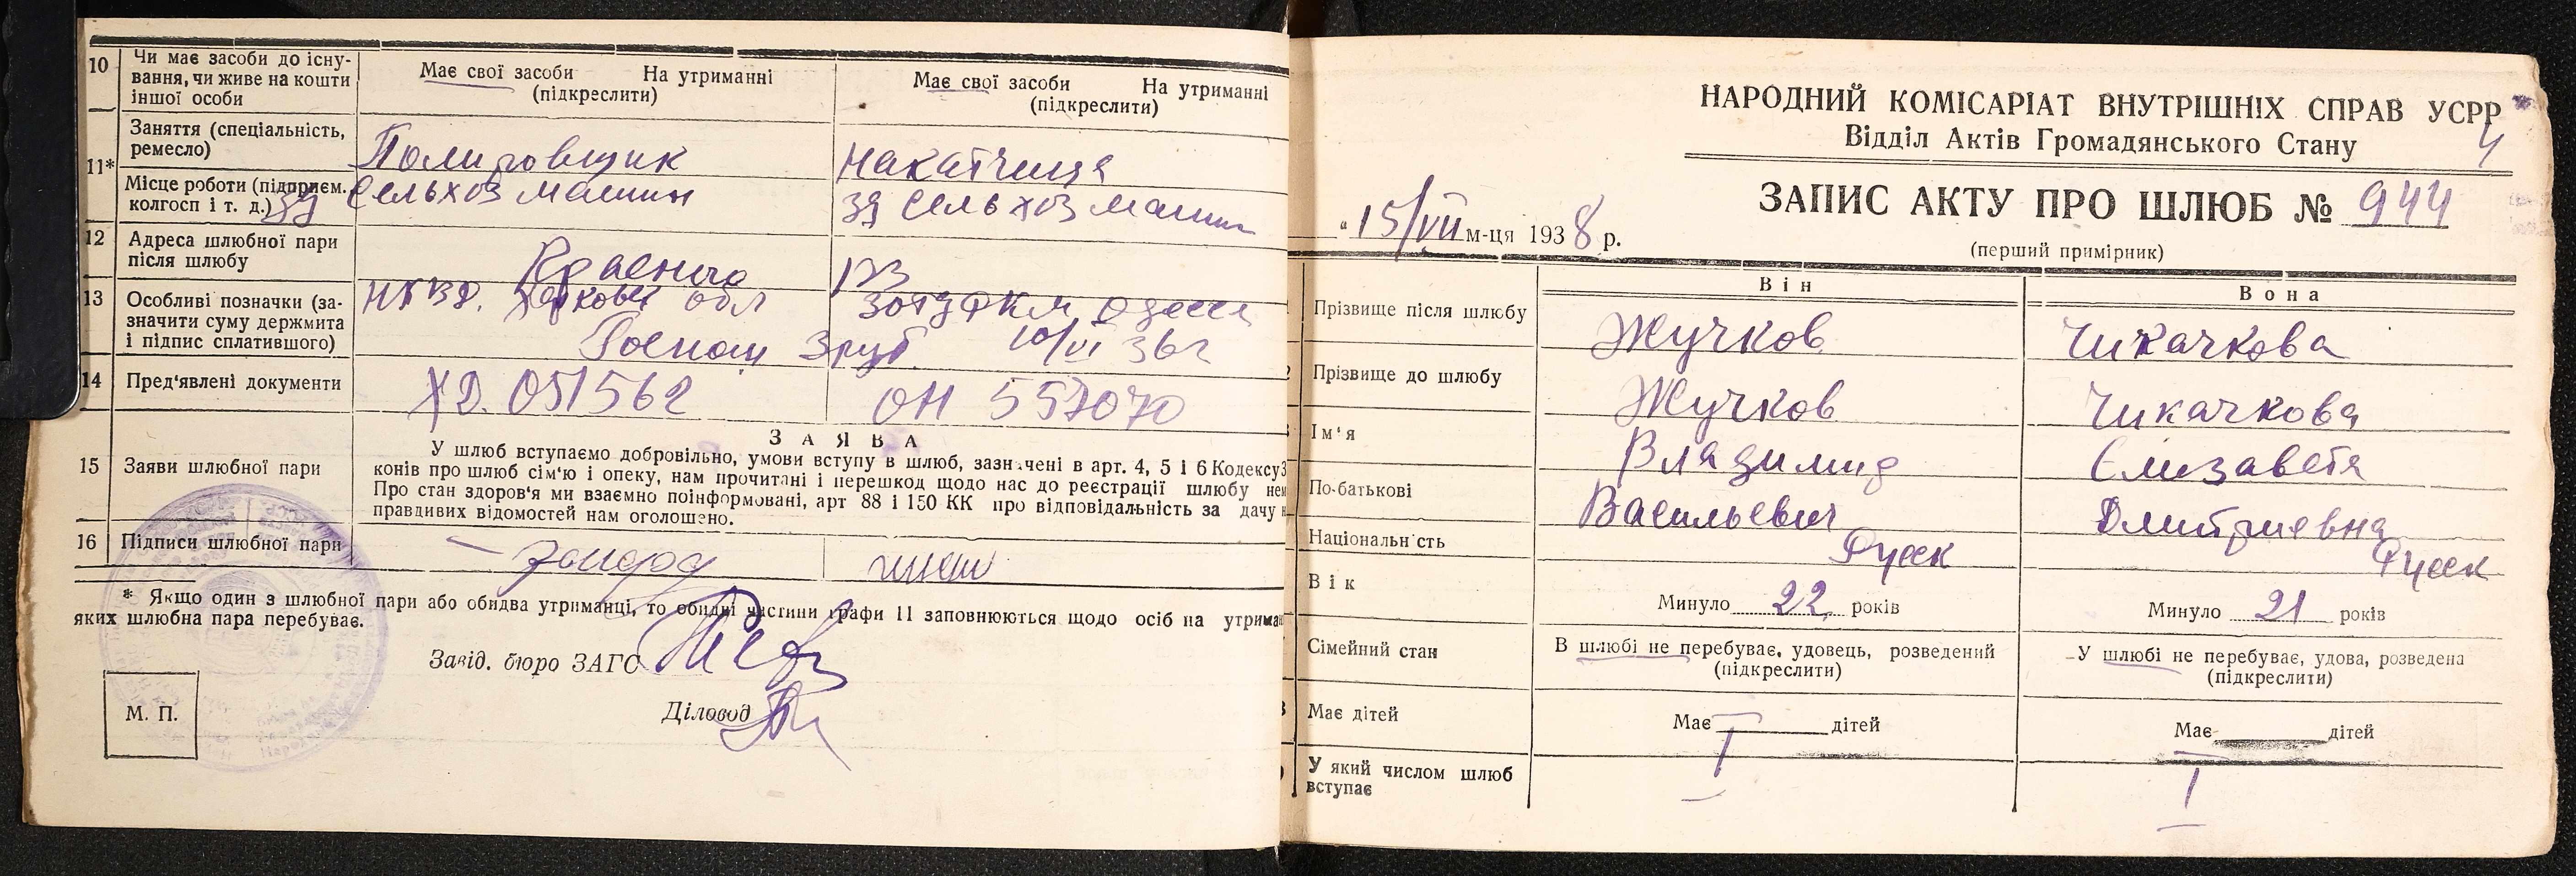 10 Чи має засоби до існу-
вання, чи живе на кошти
іншої особи
Має свої засоби На утриманні
(підкреслити)
Має свої засоби На утриманні
(підкреслити)
11* Заняття (спеціальність,
ремесло)
Полировщик
накатчица
Місце роботи (підприєм.
колгосп і т. д.)
зд Сельхоз машин
зд Сельхоз машин
12 Адреса шлюбної пари
після шлюбу
13 Особливі позначки (за-
значити суму держмита
і підпис сплатившого)
НКВД. обл
10/VI 36г
14 Пред'явлені документи
ХД. 051562
ОН 557070
15 Заяви шлюбної пари
ЗАЯВА
У шлюб вступаємо добровільно, умови вступу в шлюб, зазначені в арт. 4, 5 і 6 Кодексу З
конів про шлюб сім'ю і опеку, нам прочитані і перешкод щодо нас до реєстрації шлюбу нем
Про стан здоров'я ми взаємно поінформовані, арт 88 і 150 КК про відповідальність за дачу н
правдивих відомостей нам оголошено.
16 Підписи шлюбної пари
* Якщо один з шлюбної пари або обидва утриманці, то обидві частини графи 11 заповнюються щодо осіб на утриман
яких шлюбна пара перебуває.
Завід. бюро ЗАГС
Діловод
М. П.
НАРОДНИЙ КОМІСАРІАТ ВНУТРІШНІХ СПРАВ УСРР
4
Відділ Актів Громадянського Стану
ЗАПИС АКТУ ПРО ШЛЮБ № 944
„ 15/VII м-ця 1938 р.
(перший примірник)
Він
Вона
Прізвище після шлюбу
Жучков
Чикачкова
Прізвище до шлюбу
Жучков
Чикачкова
Ім'я
Владимир
Єлизавета
По-батькові
Васильевич
Дмитриевна
Національність
Русск
Русск
Вік
Минуло 22 років
Минуло 21 років
Сімейний стан
В шлюбі не перебуває, удовець, розведений
(підкреслити)
У шлюбі не перебуває, удова, розведена
(підкреслити)
Має дітей
Має дітей
Має дітей
У який числом шлюб
вступає
I
I